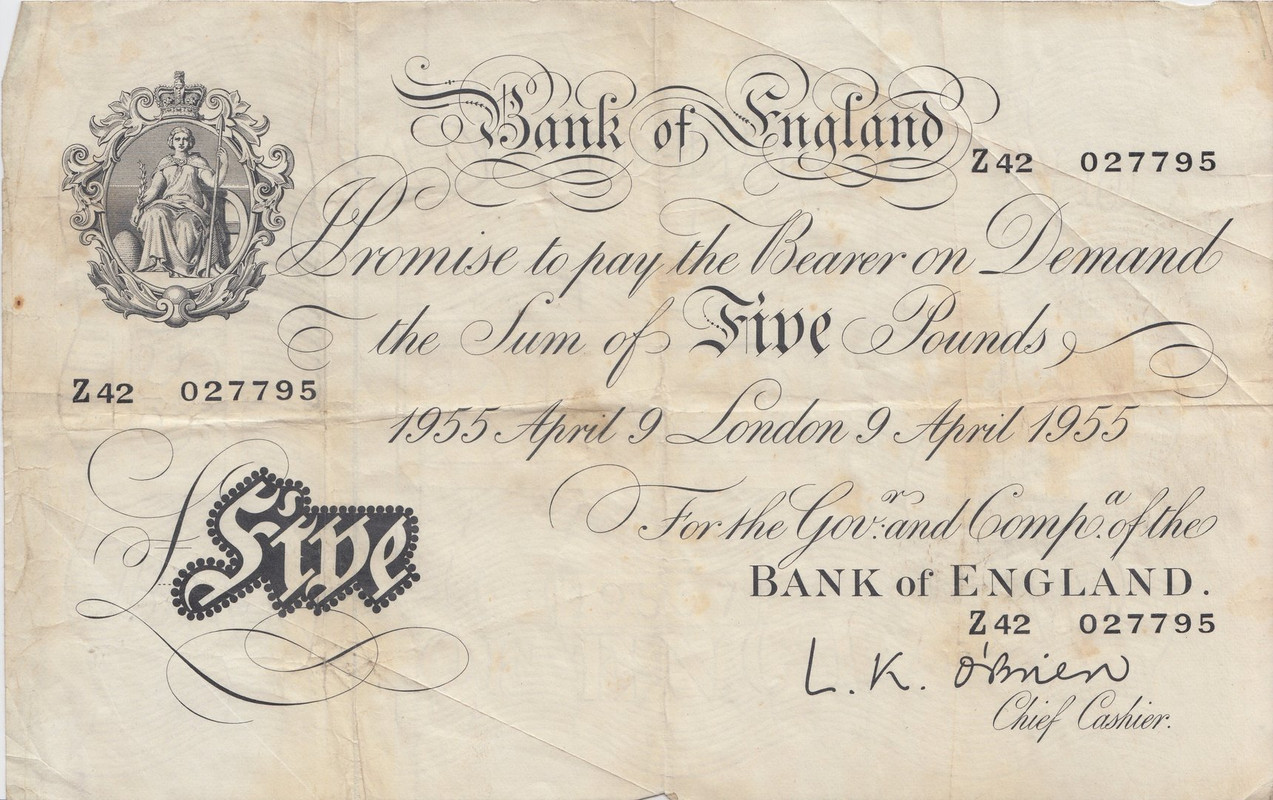 Bank of England
Z42 027795
Promise to pay the Bearer on Demand
the Sum of Five Pounds
Z42 027795
1955 April 9 London 9 April 1955
£Five
For the Gov.r and Comp.a of the
BANK of ENGLAND.
Z42 027795
L. K. O'Brien
Chief Cashier.